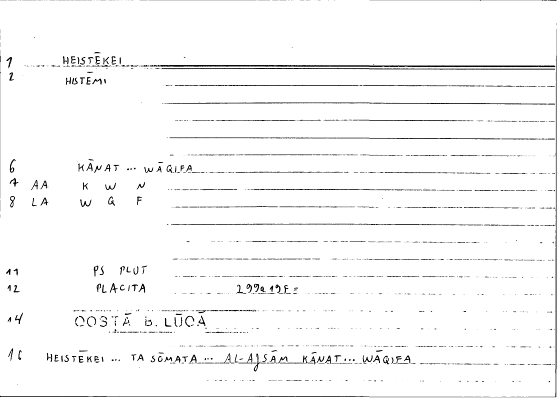 1 HEISTĒKEI
2 HISTĒMI
6 KĀNAT ... WĀQIFA
7 AA K W N
8 LA W Q F
11 PS PLUT
12 PLACITA 299a19F=
14 QOSṬĀ B. LŪQĀ
16 HEISTĒKEI ... TA SŌMATA ... AL-AǧSĀM KĀNAT ... WĀQIFA